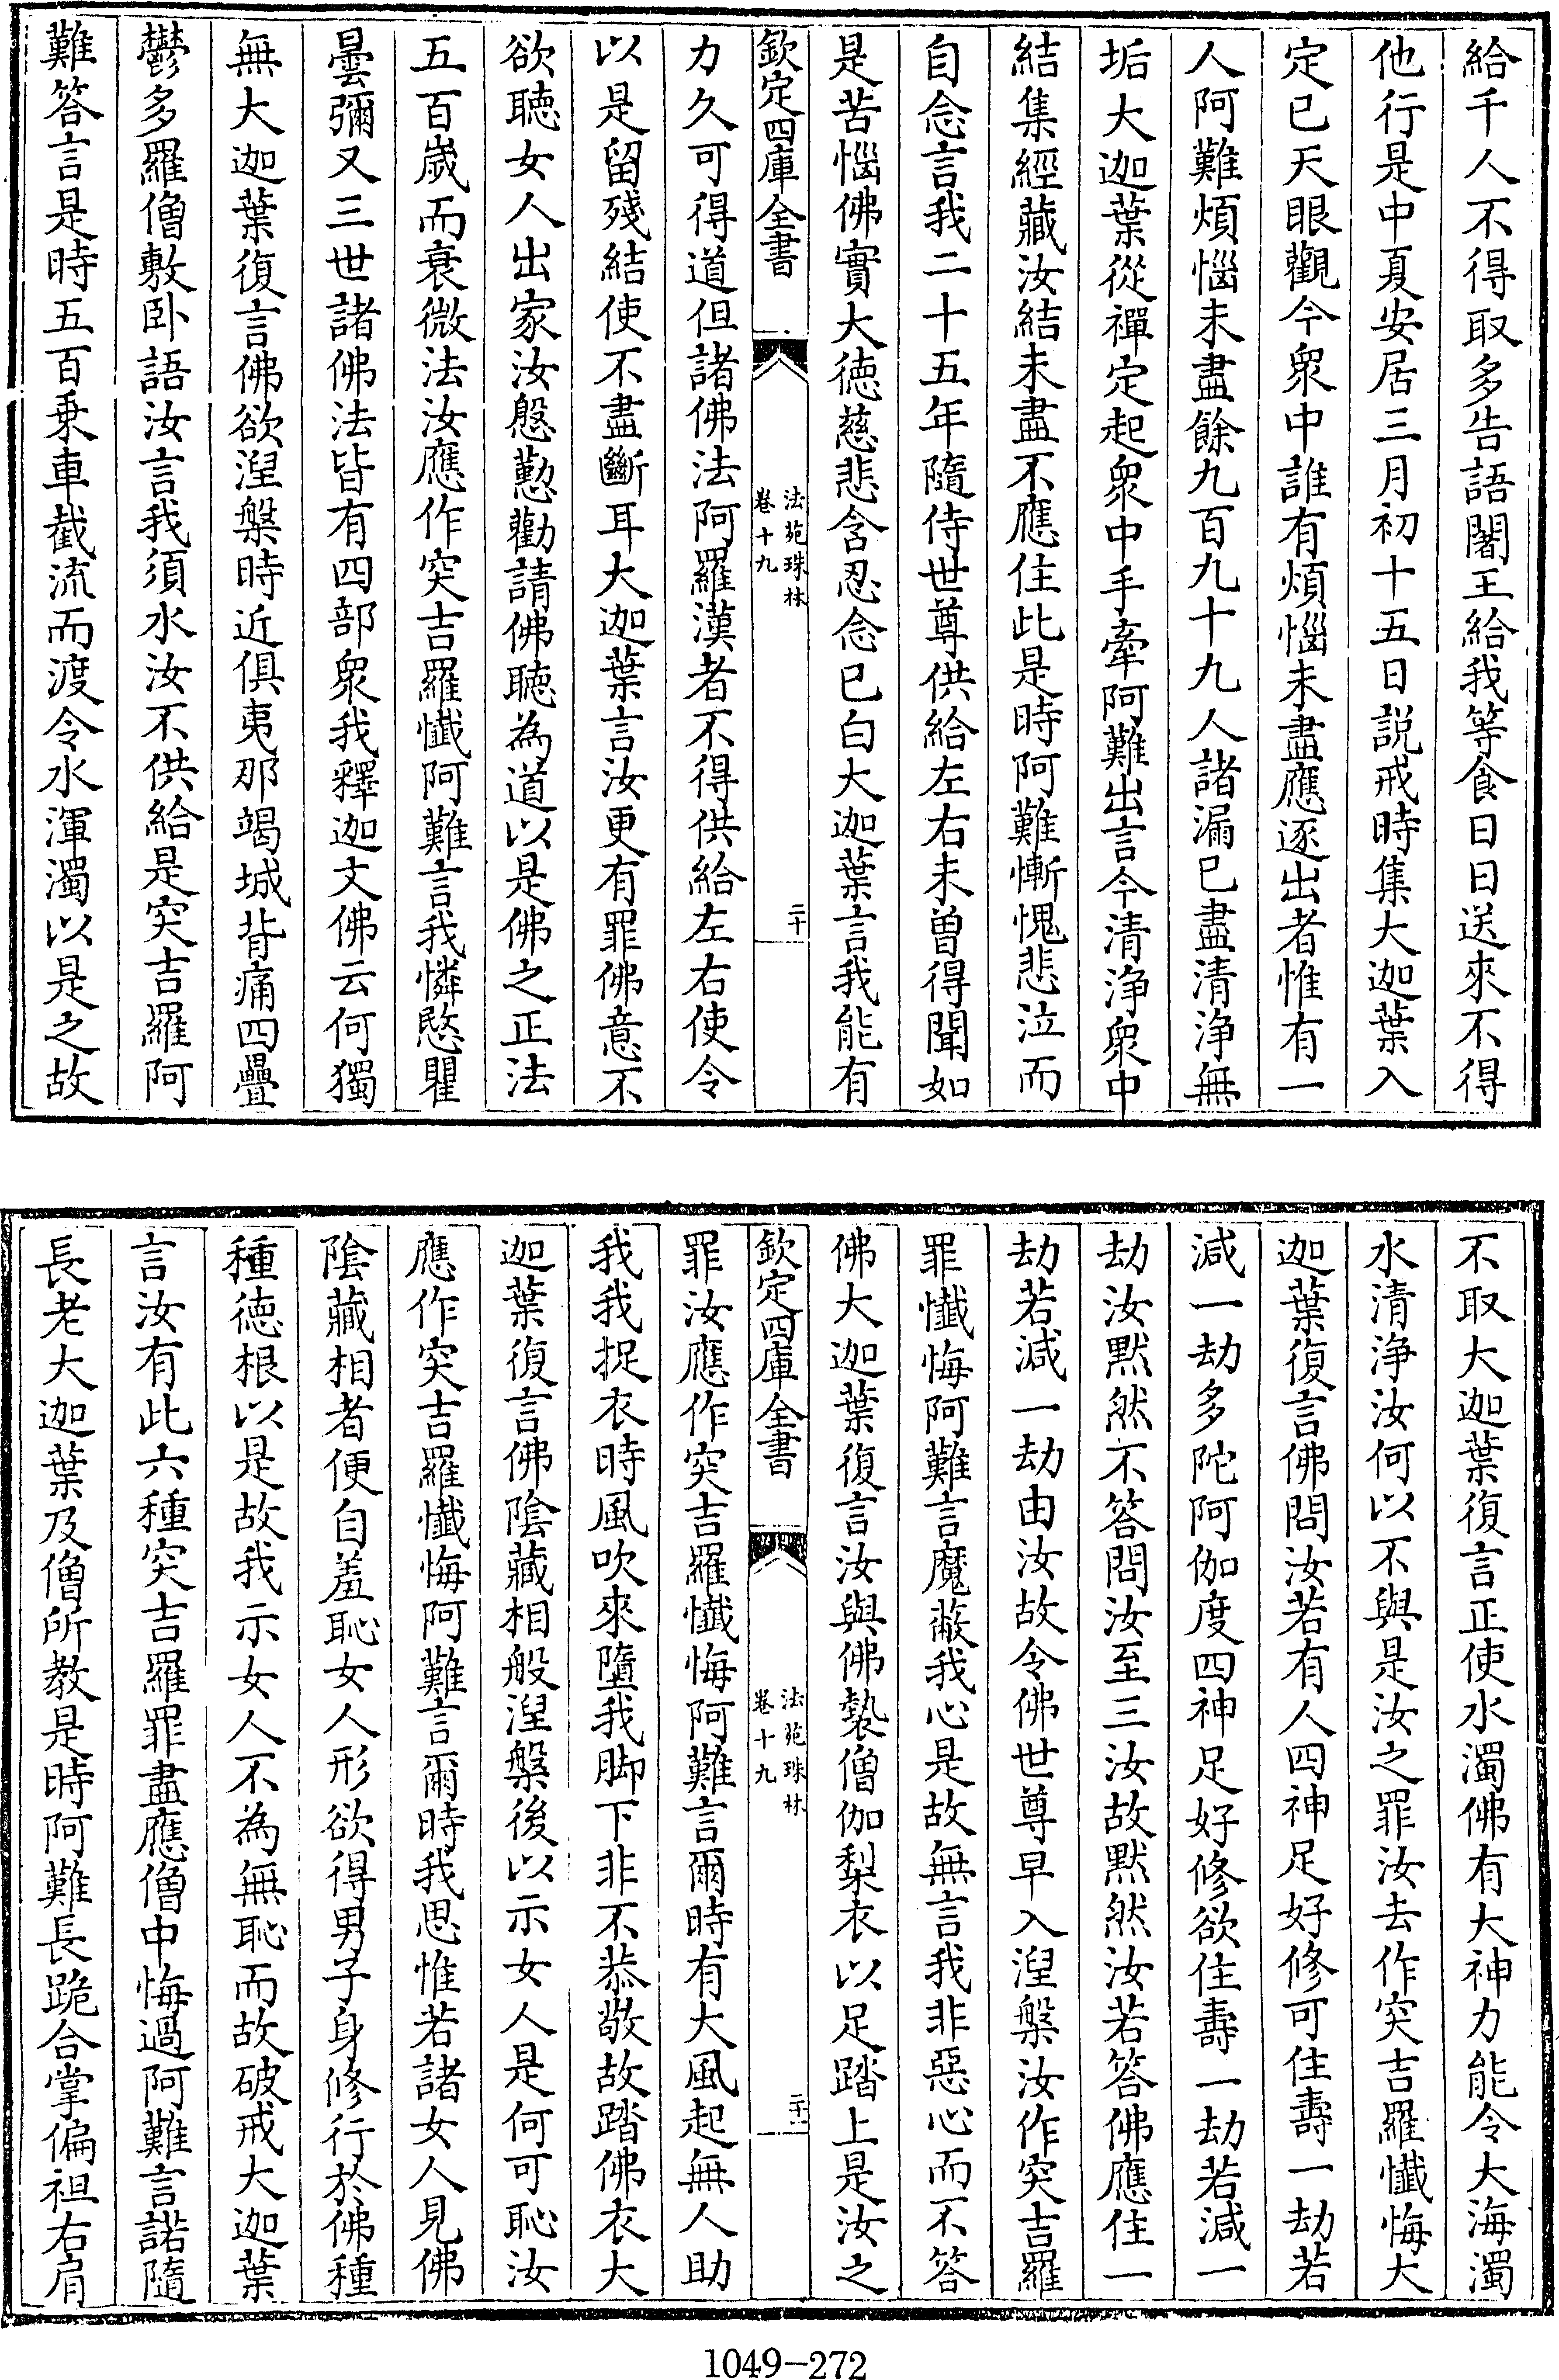 給千人不得取多告語闍王給我等食日日送來不得
他行是中夏安居三月初十五日説戒時集大迦葉入
定已天眼觀今衆中誰有煩惱未盡應逐出者惟有一
人阿難煩惱未盡餘九百九十九人諸漏已盡清浄無
垢大迦葉從禪定起衆中手牽阿難出言今清浄衆中
結集經藏汝結未盡不應住此是時阿難慚愧悲泣而
自念言我二十五年隨侍世尊供給左右未曽得聞如
是苦惱佛實大徳慈悲含忍念已白大迦葉言我能有
欽定四庫全書
法苑珠林
卷十九
二十
力久可得道但諸佛法阿羅漢者不得供給左右使令
以是留殘結使不盡斷耳大迦葉言汝更有罪佛意不
欲聽女人出家汝慇懃勸請佛聽為道以是佛之正法
五百歲而衰微法汝應作突吉羅懺阿難言我憐愍瞿
曇彌又三世諸佛法皆有四部衆我釋迦文佛云何獨
無大迦葉復言佛欲涅槃時近俱夷那竭城背痛四疊
鬱多羅僧敷卧語汝言我須水汝不供給是突吉羅阿
難答言是時五百乗車截流而渡令水渾濁以是之故
不取大迦葉復言正使水濁佛有大神力能令大海濁
水清浄汝何以不與是汝之罪汝去作突吉羅懺悔大
迦葉復言佛問汝若有人四神足好修可住壽一劫若
減一劫多陀阿伽度四神足好修欲住壽一劫若減一
劫汝黙然不答問汝至三汝故黙然汝若答佛應住一
劫若減一劫由汝故令佛世尊早入涅槃汝作突吉羅
罪懺悔阿難言魔蔽我心是故無言我非惡心而不答
佛大迦葉復言汝與佛褺僧伽梨衣以足踏上是汝之
欽定四庫全書
法苑珠林
卷十九
二十一
罪汝應作突吉羅懺悔阿難言爾時有大風起無人助
我我捉衣時風吹來墮我脚下非不恭敬故踏佛衣大
迦葉復言佛隂藏相般涅槃後以示女人是何可恥汝
應作突吉羅懺悔阿難言爾時我思惟若諸女人見佛
隂藏相者便自羞恥女人形欲得男子身修行於佛種
種徳根以是故我示女人不為無恥而故破戒大迦葉
言汝有此六種突吉羅罪盡應僧中悔過阿難言諾隨
長老大迦葉及僧所教是時阿難長跪合掌偏袒右肩
1049-272